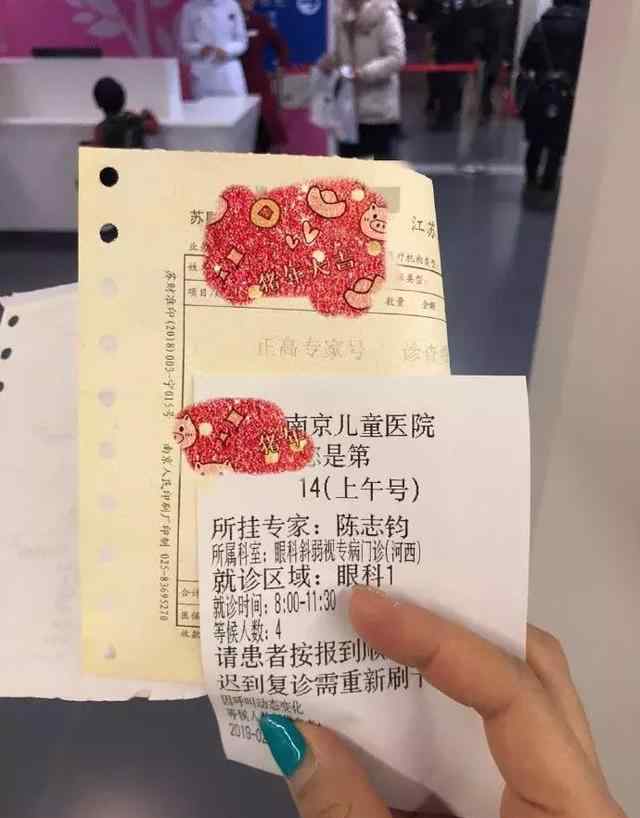 苏财
江苏
猪年大吉
姓名
疗机构类型
项目
数量 金额
正高专家号 诊查费
苏财准印(2018)003-宁015号 南京人民印刷厂印制 025-83695270
合计
医保
收款
猪年
南京儿童医院
您是第
14(上午号)
所挂专家:陈志钧
所属科室:眼科斜弱视专病门诊(河西)
就诊区域:眼科1
就诊时间:8:00-11:30
等候人数:4
请患者按报到顺
迟到复诊需重新刷卡
因呼叫动态变化
等候人
2019-02